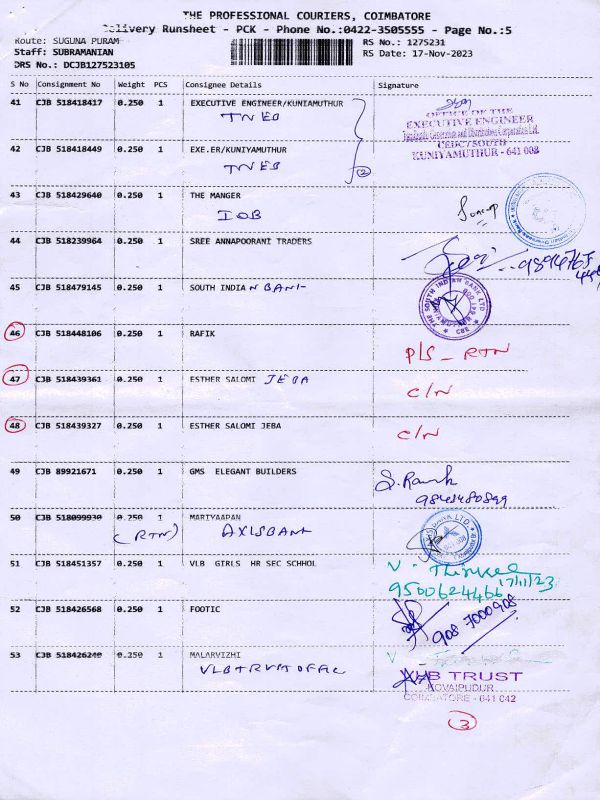 THE PROFESSIONAL COURIERS, COIMBATORE
Delivery Runsheet - PCK - Phone No.:0422-3505555 - Page No.:5
Route: SUGUNA PURAM
RS No.: 1275231
Staff: SUBRAMANIAN
RS Date: 17-Nov-2023
DRS No.: DCJB127523105
S No Consignment No Weight PCS Consignee Details Signature
41 CJB 518418417 0.250 1 EXECUTIVE ENGINEER/KUNIAMUTHUR
TNEB
OFFICE OF THE
EXECUTIVE ENGINEER
CEDC/SOUTH
KUNIYAMUTHUR - 641 008
42 CJB 518418449 0.250 1 EXE.ER/KUNIYAMUTHUR
TNEB
2
43 CJB 518429640 0.250 1 THE MANGER
IOB
44 CJB 518239964 0.250 1 SREE ANNAPOORANT TRADERS
45 CJB 518479145 0.250 1 SOUTH INDIAN BANK
THE SOUTH INDIAN BANK LTD
CBE
46 CJB 518448106 0.250 1 RAFIK
P/S - RTN
47 CJB 518439361 0.250 1 ESTHER SALOMI JEBA
C/N
48 CJB 518439327 0.250 1 ESTHER SALOMI JEBA
C/N
49 CJB 89921671 0.250 1 GMS ELEGANT BUILDERS
50 CJB 518099930 0.250 1 MARIYAAPAN
(RTN) AXIS BANK
51 CJB 518451357 0.250 1 VLB GIRLS HR SEC SCHHOL
17/11/23
9500624466
52 CJB 518426568 0.250 1 FOOTIC
908 7000908
53 CJB 518426240 0.250 1 MALARVIZHI
VLB TRUST OFFIC
VLB TRUST
KOVAIPUDUR
COIMBATORE - 641 042
3